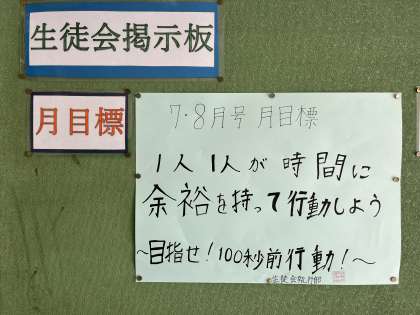 生徒会掲示板
月目標
7・8月号 月目標
1人1人が時間に
余裕を持って行動しよう
~目指せ!100秒前行動!~
生徒会執行部